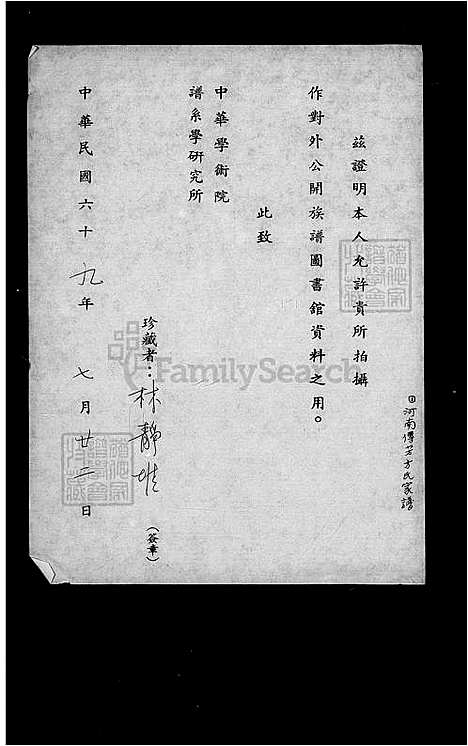 ①河南傅芳方氏家譜
茲證明本人允許貴所拍攝
作對外公開族譜圖書館資料之用。
此致
中華學術院
譜系學研究所
珍藏者：林靜 (簽章)
中華民國六十九年七月廿二日
FamilySearch